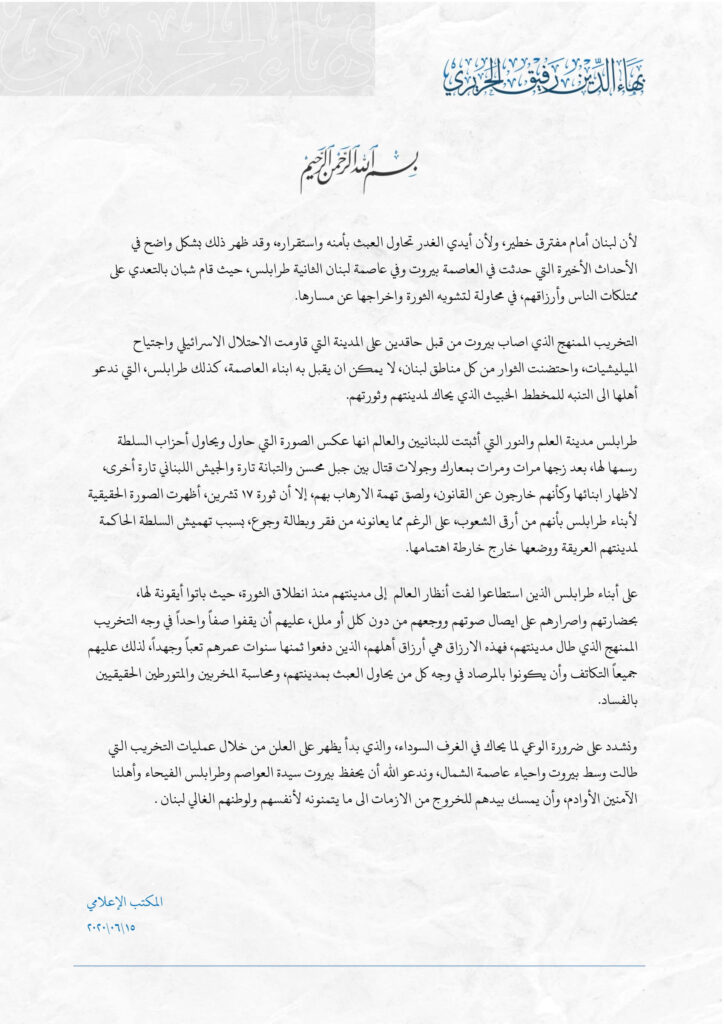 بهاء الدين رفيق الحريري
بسم الله الرحمن الرحيم
لأن لبنان أمام مفترق خطير، ولأن أيدي الغدر تحاول العبث بأمنه واستقراره، وقد ظهر ذلك بشكل واضح في
الأحداث الأخيرة التي حدثت في العاصمة بيروت وفي عاصمة لبنان الثانية طرابلس، حيث قام شبان بالتعدي على
ممتلكات الناس وأرزاقهم، في محاولة لتشويه الثورة واخراجها عن مسارها.
التخريب الممنهج الذي اصاب بيروت من قبل حاقدين على المدينة التي قاومت الاحتلال الاسرائيلي واجتياح
الميليشيات، واحتضنت الثوار من كل مناطق لبنان، لا يمكن ان يقبل به ابناء العاصمة، كذلك طرابلس، التي ندعو
أهلها الى التنبه للمخطط الخبيث الذي يحاك لمدينتهم وثورتهم.
طرابلس مدينة العلم والنور التي أثبتت للبنانيين والعالم انها عكس الصورة التي حاول ويحاول أحزاب السلطة
رسمها لها، بعد زجها مرات ومرات بمعارك وجولات قتال بين جبل محسن والتبانة تارة والجيش اللبناني تارة أخرى،
لاظهار ابنائها وكأنهم خارجون عن القانون، ولصق تهمة الارهاب بهم، إلا أن ثورة ١٧ تشرين، أظهرت الصورة الحقيقية
لأبناء طرابلس بأنهم من أرقى الشعوب، على الرغم مما يعانونه من فقر وبطالة وجوع، بسبب تهميش السلطة الحاكمة
لمدينتهم العريقة ووضعها خارج خارطة اهتمامها.
على أبناء طرابلس الذين استطاعوا لفت أنظار العالم إلى مدينتهم منذ انطلاق الثورة، حيث باتوا أيقونة لها،
بحضارتهم واصرارهم على ايصال صوتهم ووجعهم من دون كلل أو ملل، عليهم أن يقفوا صفاً واحداً في وجه التخريب
الممنهج الذي طال مدينتهم، فهذه الارزاق هي أرزاق أهلهم، الذين دفعوا ثمنها سنوات عمرهم تعباً وجهداً، لذلك عليهم
جميعاً التكاتف وأن يكونوا بالمرصاد في وجه كل من يحاول العبث بمدينتهم، ومحاسبة المخربين والمتورطين الحقيقيين
بالفساد.
ونشدد على ضرورة الوعي لما يحاك في الغرف السوداء، والذي بدأ يظهر على العلن من خلال عمليات التخريب التي
طالت وسط بيروت واحياء عاصمة الشمال، وندعو الله أن يحفظ بيروت سيدة العواصم وطرابلس الفيحاء وأهلنا
الآمنين الأوادم، وأن يمسك بيدهم للخروج من الازمات الى ما يتمنونه لأنفسهم ولوطنهم الغالي لبنان .
المكتب الإعلامي
٢٠٢٠\٠٦\١٥